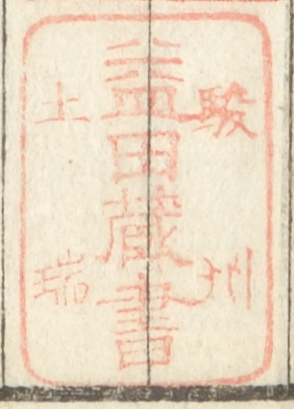 駿州
益田蔵書
土瑞